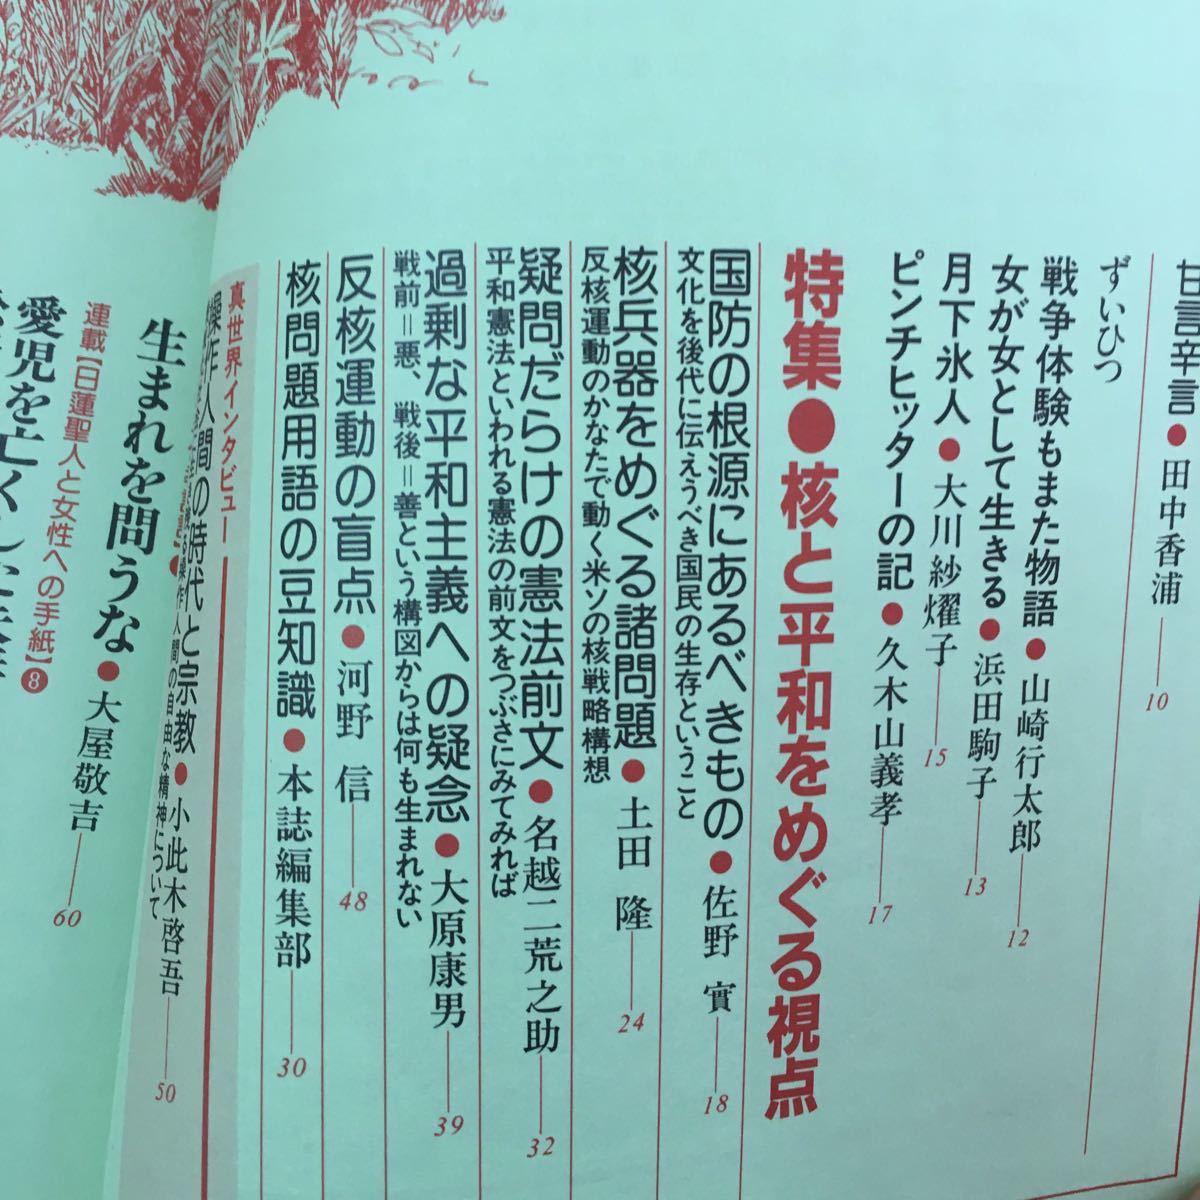 甘言辛言●田中香浦 10
ずいひつ
戦争体験もまた物語●山崎行太郎 12
女が女として生きる●浜田駒子 13
月下氷人●大川紗燿子 15
ピンチヒッターの記●久木山義孝 17
特集●核と平和をめぐる視点
国防の根源にあるべきもの●佐野 實 18
文化を後代に伝えうべき国民の生存ということ
核兵器をめぐる諸問題●土田 隆 24
反核運動のかなたで動く米ソの核戦略構想
疑問だらけの憲法前文●名越二荒之助 32
平和憲法といわれる憲法の前文をつぶさにみてみれば
過剰な平和主義への疑念●大原康男 39
戦前＝悪、戦後＝善という構図からは何も生まれない
反核運動の盲点●河野 信 48
核問題用語の豆知識●本誌編集部 30
真世界インタビュー
操作人間の時代と宗教●小此木啓吾 50
操作人間の自由な精神について
生まれを問うな●大屋敬吉 60
連載【日蓮聖人と女性への手紙】❽
愛児を亡くした